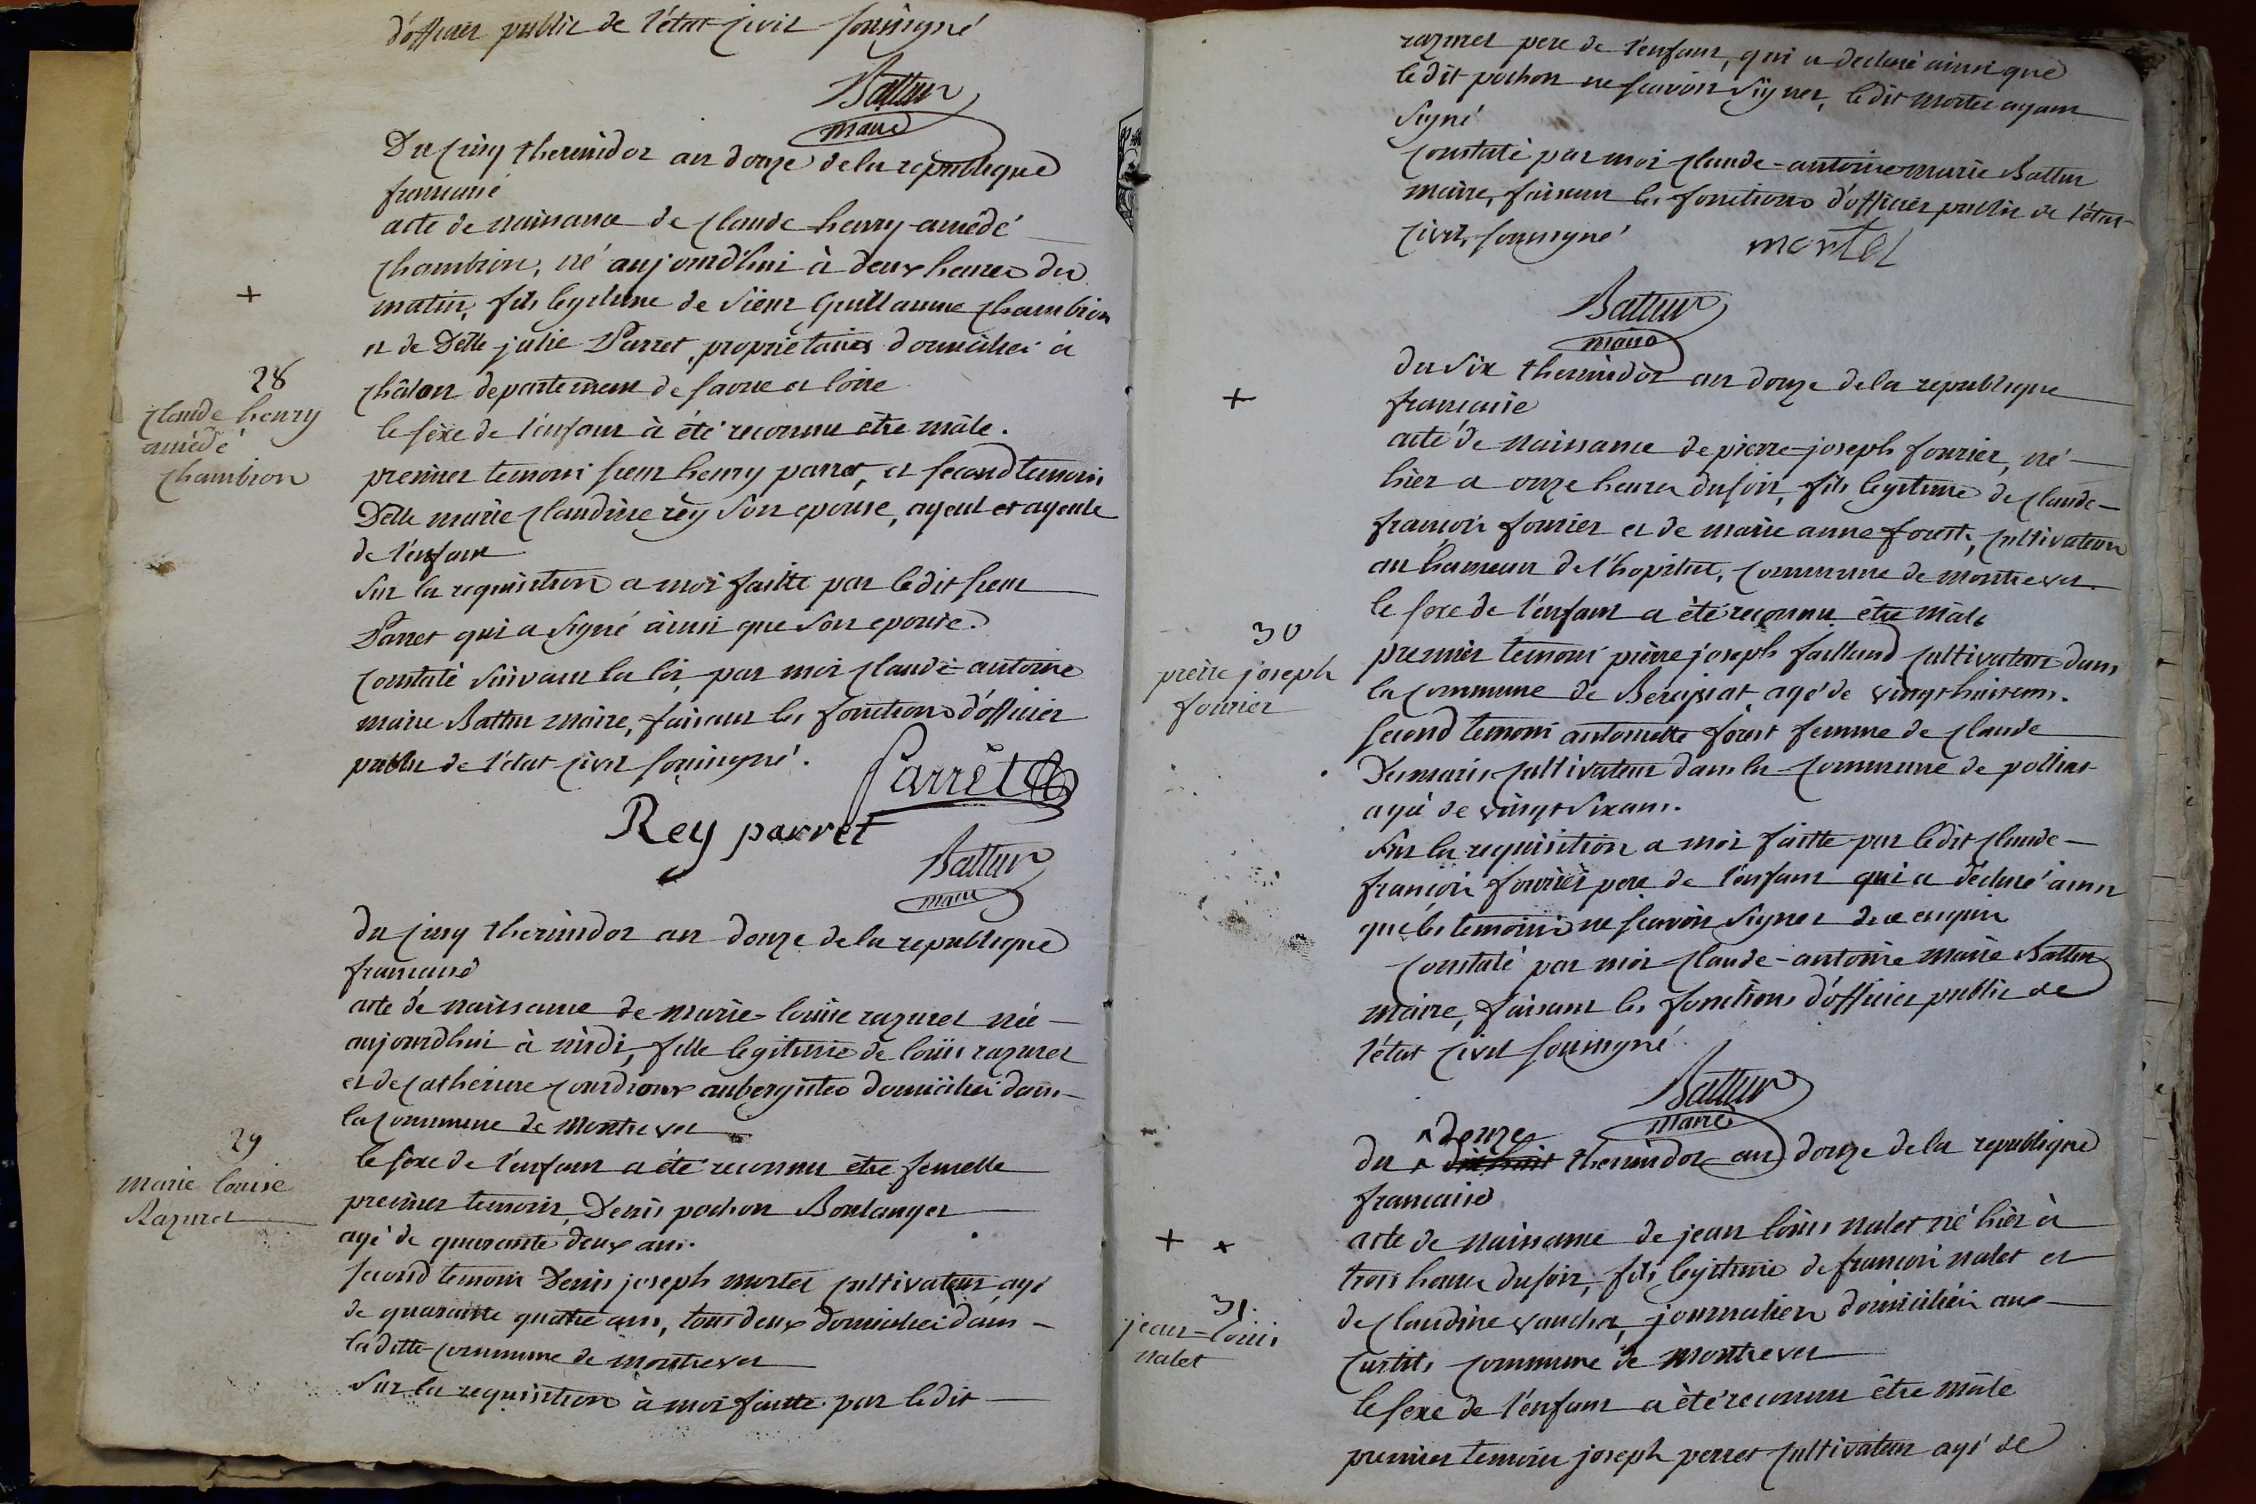 d'officier public de l'état civil soussigné
Battur
maire
Du cinq thermidor an douze de la republique
francaise
acte de naissance de claude henry amédé
chambion, né aujourd'hui à deux heures du
matin, fils legitime de sieur Guillaume chambion
et de Delle julie Parret, proprietaires domiciliés à
châlon departement de saone et loire
le séxe de l'enfant à été reconnu être mâle.
premier temoin sieur henry parret, et second temoin
Delle marie claudine rëy son epouse, ayeul et ayeule
de l'enfant
sur la requisition a moi faitte par ledit sieur
Parret qui a signé ainsi que son epouse.
constaté suivant la loi, par moi claude-antoine
marie Battur maire, faisant les fonctions d'officier
public de l'état civil soussigné.
Parret
Rey parret
Battur
maire
28
claude henry
amédé
chambion
du cinq thermidor an douze de la republique
francaise
acte de naissance de marie-louise razurel née
aujourdhui à midi, fille legitime de loüis razurel
et de catherine courdioux aubergistes domiciliés dans
la commune de montrevel
le sexe de l'enfant a été reconnu être femelle
premier temoin, Denis pochon Boulanger
agé de quarante deux ans.
second temoin Denis joseph mortel cultivateur agé
de quarante quatre ans, tous deux domiciliés dans
la ditte commune de montrevel
sur la requisition à moi faitte par ledit
29
marie louise
Razurel
razurel pere de l'enfant, qui a declaré ainsi que
ledit pochon ne scavoir signer, ledit mortel ayant
signé
constaté par moi claude-antoine marie Battur
maire, faisant les fonctions d'officier public de l'état
civil, soussigné
mortel
Battur
maire
du six thermidor an douze de la republique
francaise
acte de naissance de pierre-joseph fourier, né
hier a onze heures du soir, fils legitime de claude-
françois fourier et de marie anne forest, cultivateurs
au hameau de l'hopital, commune de montrevel
le sexe de l'enfant a été reconnu être mâle
premier temoin pierre joseph failland cultivateur dans
la commune de Bereiziat agé de vingt huit ans.
second temoin antoinette forest femme de claude
Desmaris cultivateur dans la commune de polliat
agée de vingt six ans.
sur la requisition a moi faitte par ledit claude-
françois fourier pere de l'enfant qui a déclaré ainsi
que les temoins ne scavoir signer de ce enquis
constaté par moi claude-antoine marie Battur
maire, faisant les fonctions d'officier public de
l'état civil soussigné
Battur
maire
30
pierre joseph
fourier
douze
du dix huit thermidor an douze de la republique
francaise
acte de naissance de jean loüis nalet né hier à
trois heures du soir, fils legitime de francois nalet et
de claudine vaucher, journaliers domiciliés aux
curtils commune de montrevel
le sexe de l'enfant a été reconnu être mâle
premier temoin joseph perret cultivateur agé de
31.
jean-loüis
nalet